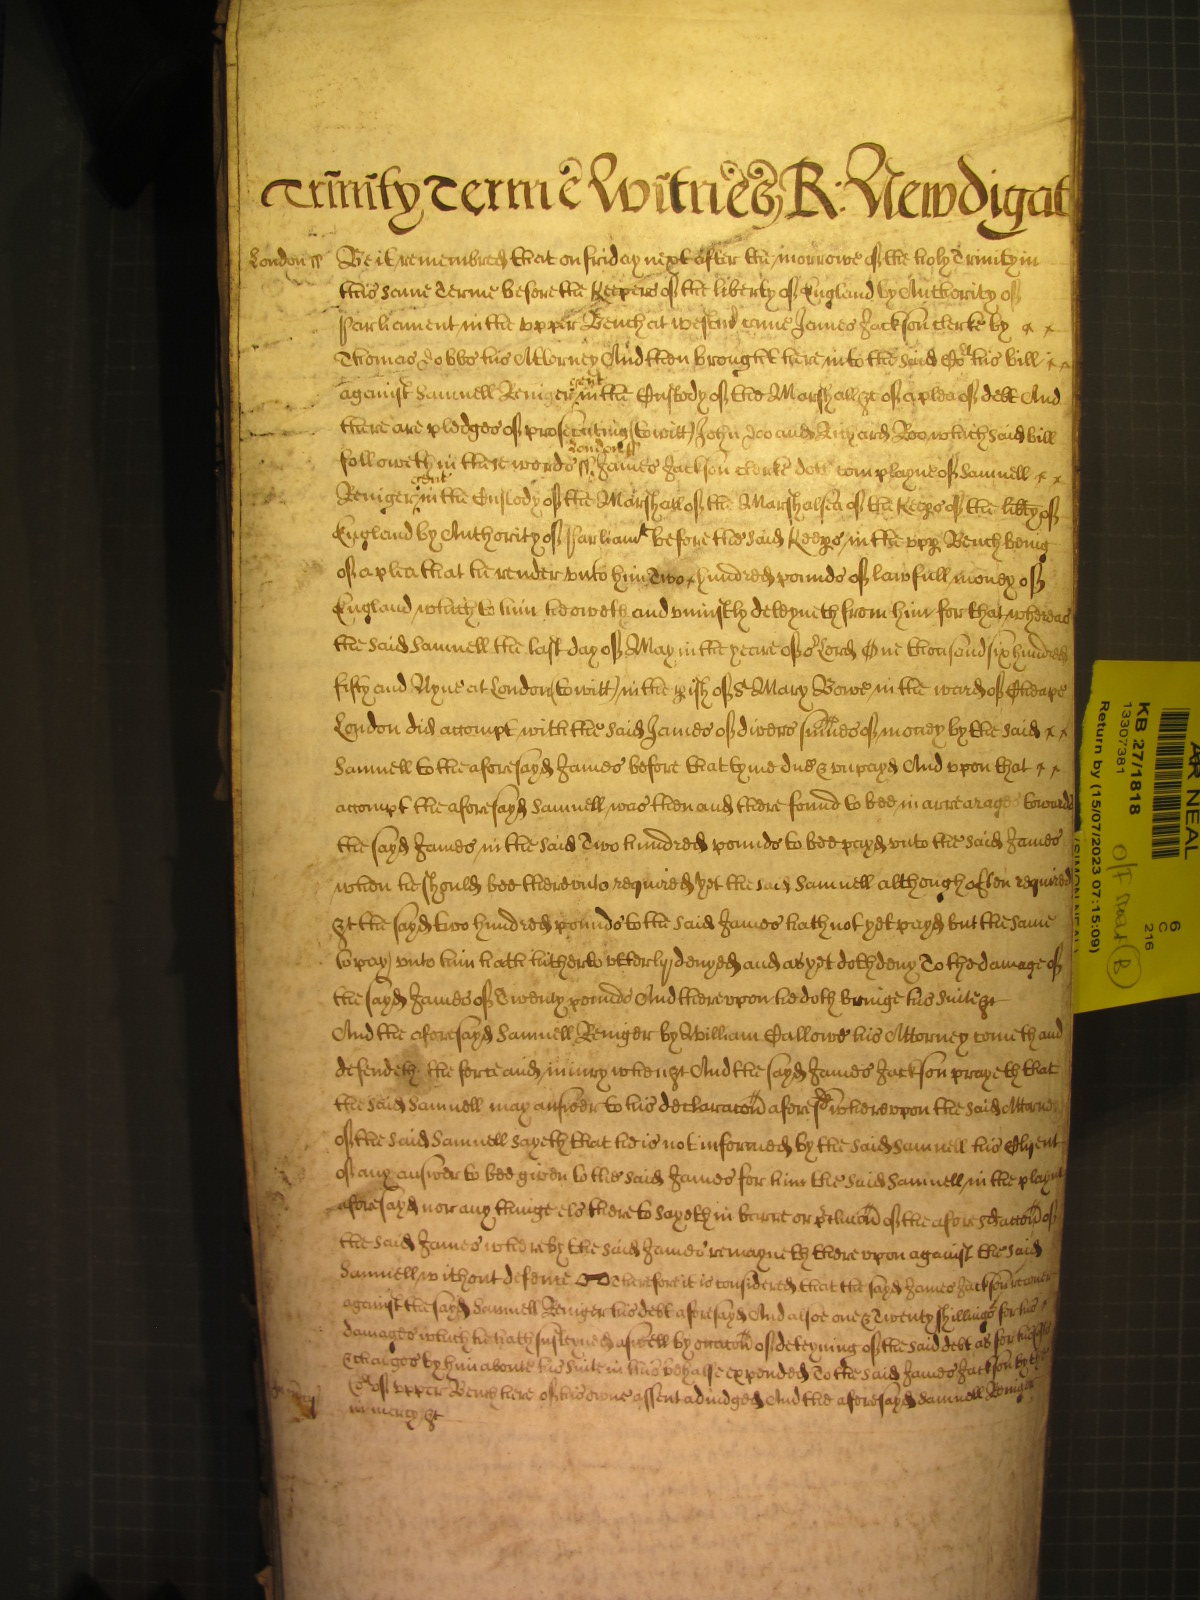 Trinity Terme Witnes R: Newdigat
London ss Be it remembred that on friday next after the morrowe of the holy Trinity in
this same Terme before the Keepers of the liberty of England by Authority of
Parliament in the vpper Bench at westmr came James Jackson clerke by
Thomas Hobbs his Attorney And then brought here into the said Cort his bill
against Samuell Reniger gent in the Custody of the Marshall &c of a plea of debt And
there are pledges of prosecuting (to witt) John Doo and Richard Roo which said bill
followeth in these words ss London ss James Jackson clerke doth complayne of Samuell
Reniger gent in the Custody of the Marshall of the Marshalsea of the Keeps of the libty of
England by Authority of Parliamt before the said Keeps in the vpp Bench being
of a plea that he render vnto him Two hundred pounds of lawfull money of
England which to him he oweth and vniustly deteyneth from him for that whereas
the said Samuell the last day of May in the yeare of or Lord One thousand six hundred
fifty and Nyne at London (to witt) in the pish of St Mary Bowe in the ward of Cheape
London did accompt with the said James of divers sumes of money by the said
Samuell to the aforesayd James before that tyme due & vnpayd And vpon that
accompt the aforesayd Samuell was then and there found to bee in arrearages towards
the sayd James in the said Two hundred pounds to bee payd vnto the said James
when he should bee therevnto required yet the said Samuell although often required
&c the sayd two hundred pounds to the said James hath not yet payd but the same
to pay vnto him hath hitherto vtterly denyed and as yet doth deny To the damage of
the sayd James of Twenty pounds And therevpon he doth bringe his suite &c
And the aforesayd Samuell Reniger by William Callowe his Attorney cometh and
defendeth the force and iniury when &c And the sayd James Jackson prayeth that
the said Samuell may answer to his declaracon aforesd wherevpon the said Attorney
of the said Samuell sayeth that he is not informed by the said Samuell his Clyent
of any answer to bee given to the said James for him the said Samuell in the playnt
aforesayd nor any thinge els there to sayeth in barre or pclucon of the aforesd accon of
the said James whereby the said James remayneth therevpon against the said
Samuell without defence Therefore it is considered that the sayd James Jackson recover
against the sayd Samuell Reniger his debt aforesayd And alsoe one & Twenty shillings for his
damages which he hath susteyned aswell by occacon of deteyning of the said debt as for his costs
& charges by him aboute his suite in this behalfe expended To the said James Jackson by the
Cort of vpper Bench here of his owne assent adiudged And the aforesayd Samuell Reniger
in mercy &c
AR NEAL
KB 27/1818
13307381
Return by (15/07/2023 07:15:09)
(SIMON NEAL)
6
C
216
B